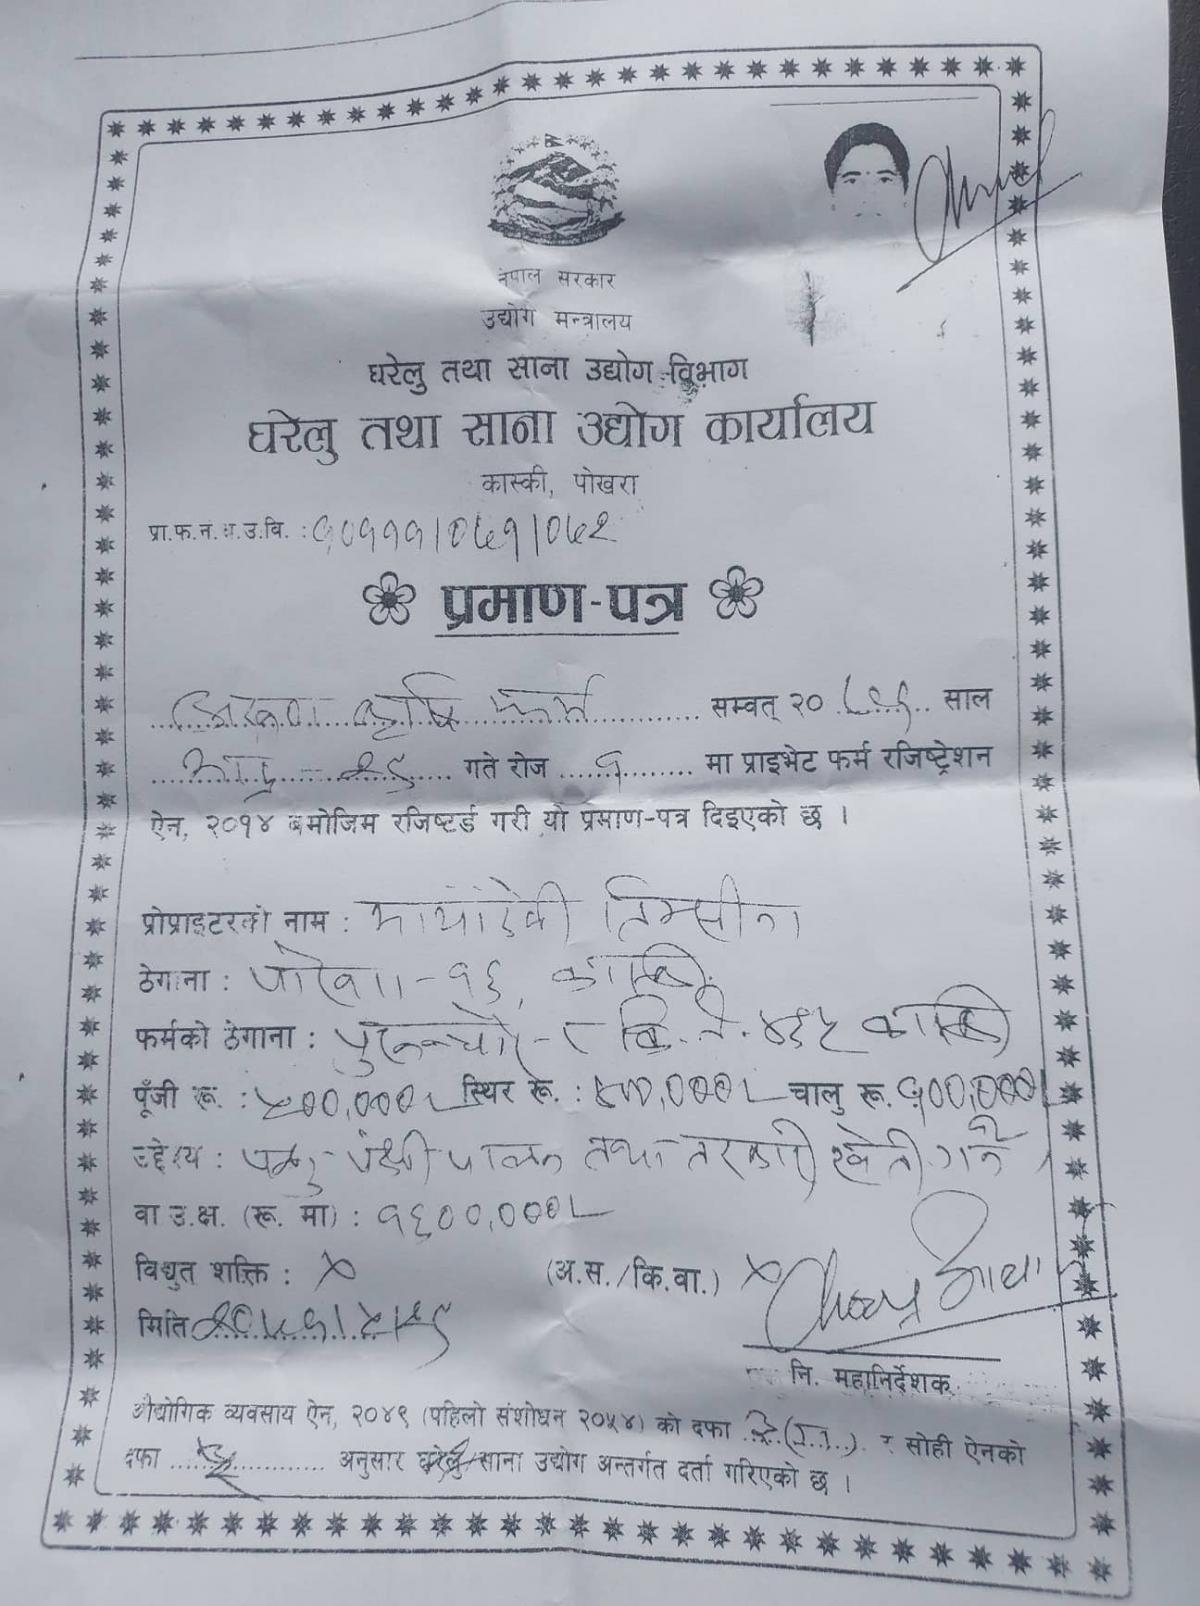 नेपाल सरकार
उद्योग मन्त्रालय
घरेलु तथा साना उद्योग विभाग
घरेलु तथा साना उद्योग कार्यालय
कास्की, पोखरा
प्रा.फ.नं.घ.उ.वि. : १०१११/०७१/०७२
प्रमाण-पत्र
कृषि फर्म सम्वत् २०७१ साल
भाद्र २९ गते रोज १ मा प्राइभेट फर्म रजिष्ट्रेशन
ऐन, २०१४ बमोजिम रजिष्टर्ड गरी यो प्रमाण-पत्र दिइएको छ ।
प्रोप्राइटरको नाम : मायादेवी तिम्सीना
ठेगाना : पोखरा-१६, कास्की
फर्मको ठेगाना : पुरुन्चौर-८ कि.नं. कास्की
पूँजी रू. : ५००,०००/- स्थिर रू. : ४००,०००/- चालु रू. १००,०००/-
उद्देश्य : पशु-पंक्षी पालन तथा तरकारी खेती गर्ने
वा.उ.क्ष. (रू. मा) : १६००,०००/-
विद्युत शक्ति : × (अ.स./कि.वा.) ×
मिति २०७१/५/२९
नि. महानिर्देशक
औद्योगिक व्यवसाय ऐन, २०४९ (पहिलो संशोधन २०५४) को दफा र सोही ऐनको
दफा अनुसार घरेलु/साना उद्योग अन्तर्गत दर्ता गरिएको छ ।